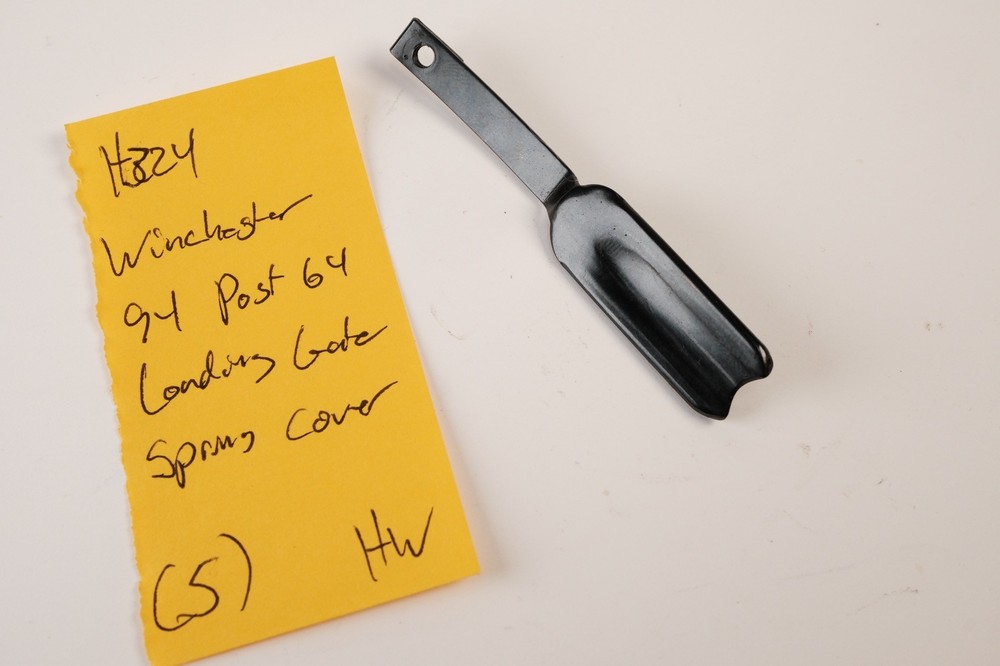 H324
Winchester
94 Post 64
Loading Gate
Spring Cover
(5) HW